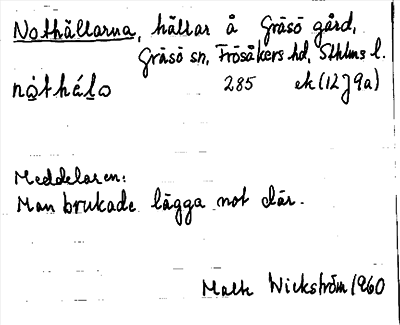 Nothällarna, hällar å Gräsö gård,
Gräsö sn, Frösåkers hd, Sthlms l.
nòtháḷa 285 ek (12J9a)
Meddelaren:
Man brukade lägga not där.
Wickström 1960